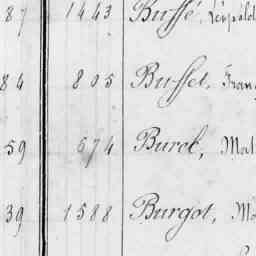 87 1443 Buffé, Léopold
84 805 Buffet, Fran
59 574 Burek, Mat
39 1588 Burgot, Ma